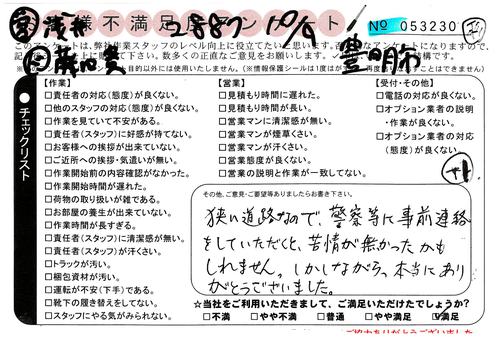 お客様不満足度アンケート
2887 10/9
No 053230
豊明市
チェックリスト
【作業】
□責任者の対応(態度)が良くない。
□他のスタッフの対応(態度)が良くない。
□作業を見ていて不安がある。
□責任者(スタッフ)に好感が持てない。
□お客様への挨拶が出来ていない。
□ご近所への挨拶・気遣いが無い。
□作業開始前の内容確認がなかった。
□作業開始時間が遅れた。
□荷物の取り扱いが雑である。
□お部屋の養生が出来ていない。
□作業時間が長すぎる。
□責任者(スタッフ)に清潔感が無い。
□責任者(スタッフ)が汗くさい。
□トラックが汚い。
□梱包資材が汚い。
□運転が不安(下手)である。
□靴下の履き替えをしてない。
□スタッフにやる気がみられない。
【営業】
□見積もり時間に遅れた。
□見積もり時間が長い。
□営業マンに清潔感が無い。
□営業マンが煙草くさい。
□営業マンが汗くさい。
□営業態度が良くない。
□営業の説明と作業が一致してない。
【受付・その他】
□電話の対応が良くない。
□オプション業者の説明
・作業が良くない。
□オプション業者の対応
(態度)が良くない。
その他、ご意見・ご要望等ありましたらお書き下さい。
狭い道路なので、警察等に事前連絡
をしていただくと、苦情が無かったかも
しれません。しかしながら、本当にあり
がとうございました。
☆当社をご利用いただきまして、ご満足いただけたでしょうか?
□不満 □やや不満 □普通 □やや満足 ☑満足
ご協力ありがとうございました